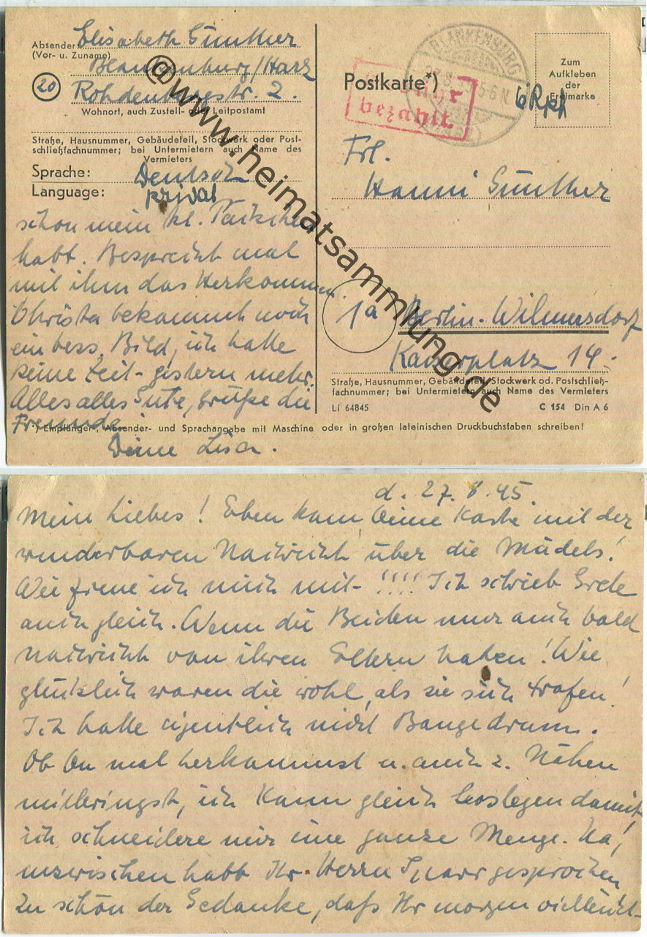 Absender Elisabeth Günther
(Vor- u. Zuname)
Blankenburg/Harz
20
Rohdenbergstr. 2.
Wohnort, auch Zustell- oder Leitpostamt
Straße, Hausnummer, Gebäudeteil, Stockwerk oder Post-
schließfachnummer; bei Untermietern auch Name des
Vermieters
Sprache: Deutsch
Language: privat
schon mein kl. Päckchen
habt. Besprecht mal
mit ihm das Herkommen
Christa bekommt noch
ein bess. Bild, ich hatte
keine Zeit gestern mehr.
Alles alles Gute, Grüße die
Freunde!
*) Empfänger-, Absender- und Sprachangabe mit Maschine oder in großen lateinischen Druckbuchstaben schreiben!
Deine Lisa.
Postkarte*)
Gebühr
bezahlt
BLANKENBURG
Zum
Aufkleben
der
Freimarke
6 Rpf
Frl.
Hanni Günther
1a
Berlin-Wilmersdorf
Kaiserplatz 14
Straße, Hausnummer, Gebäudeteil, Stockwerk od. Postschließ-
fachnummer; bei Untermietern auch Name des Vermieters
Li 64845 C 154 Din A 6
@www.heimatsammlung.de
d. 27.8.45.
Mein Liebes! Eben kam Deine Karte mit der
wunderbaren Nachricht über die Mädels!
Wie freue ich mich mit-!!!! Ich schrieb Grete
auch gleich. Wenn die Beiden nur auch bald
Nachricht von ihren Eltern haben! Wie
glücklich waren die wohl, als sie sich trafen!
Ich hatte eigentlich nicht Bange drum.
Ob Du mal herkommst u. auch z. Nähen
mitbringst, ich kann gleich loslegen damit,
ich schneidere mir eine ganze Menge. Na,
inzwischen habt Ihr Herrn gesprochen
Zu schön der Gedanke, daß Ihr morgen vielleicht